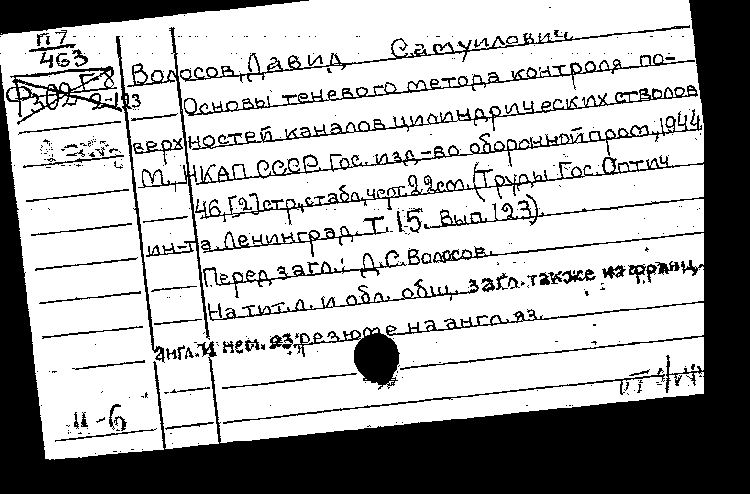 П7
463
Ф302 Г-8
2-123
Волосов, Давид Самуилович
Основы теневого метода контроля по-
верхностей каналов цилиндрических стволов
М., НКАП СССР. Гос. изд-во оборонной пром., 1944
46, [2] стр., с табл., черт. 22 см. (Труды Гос. Оптич
ин-та. Ленинград. Т. 15. Вып. 123).
Перед загл.: Д.С. Волосов.
На тит. л. и обл. общ. загл. также на франц.,
англ. и нем. яз. резюме на англ. яз.
II-6